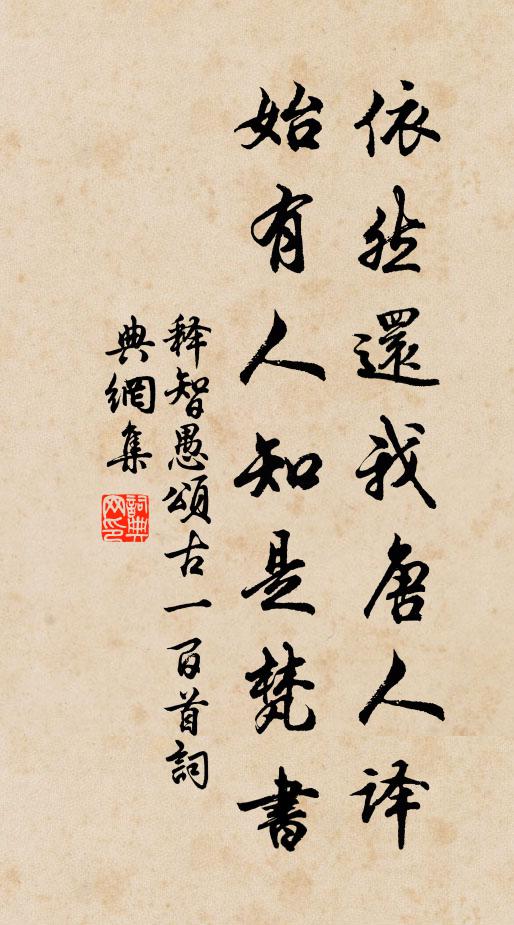 依然還我唐人译
始有人知是梵書
释智愚頌古一百首詞
典網集
詞典
网印